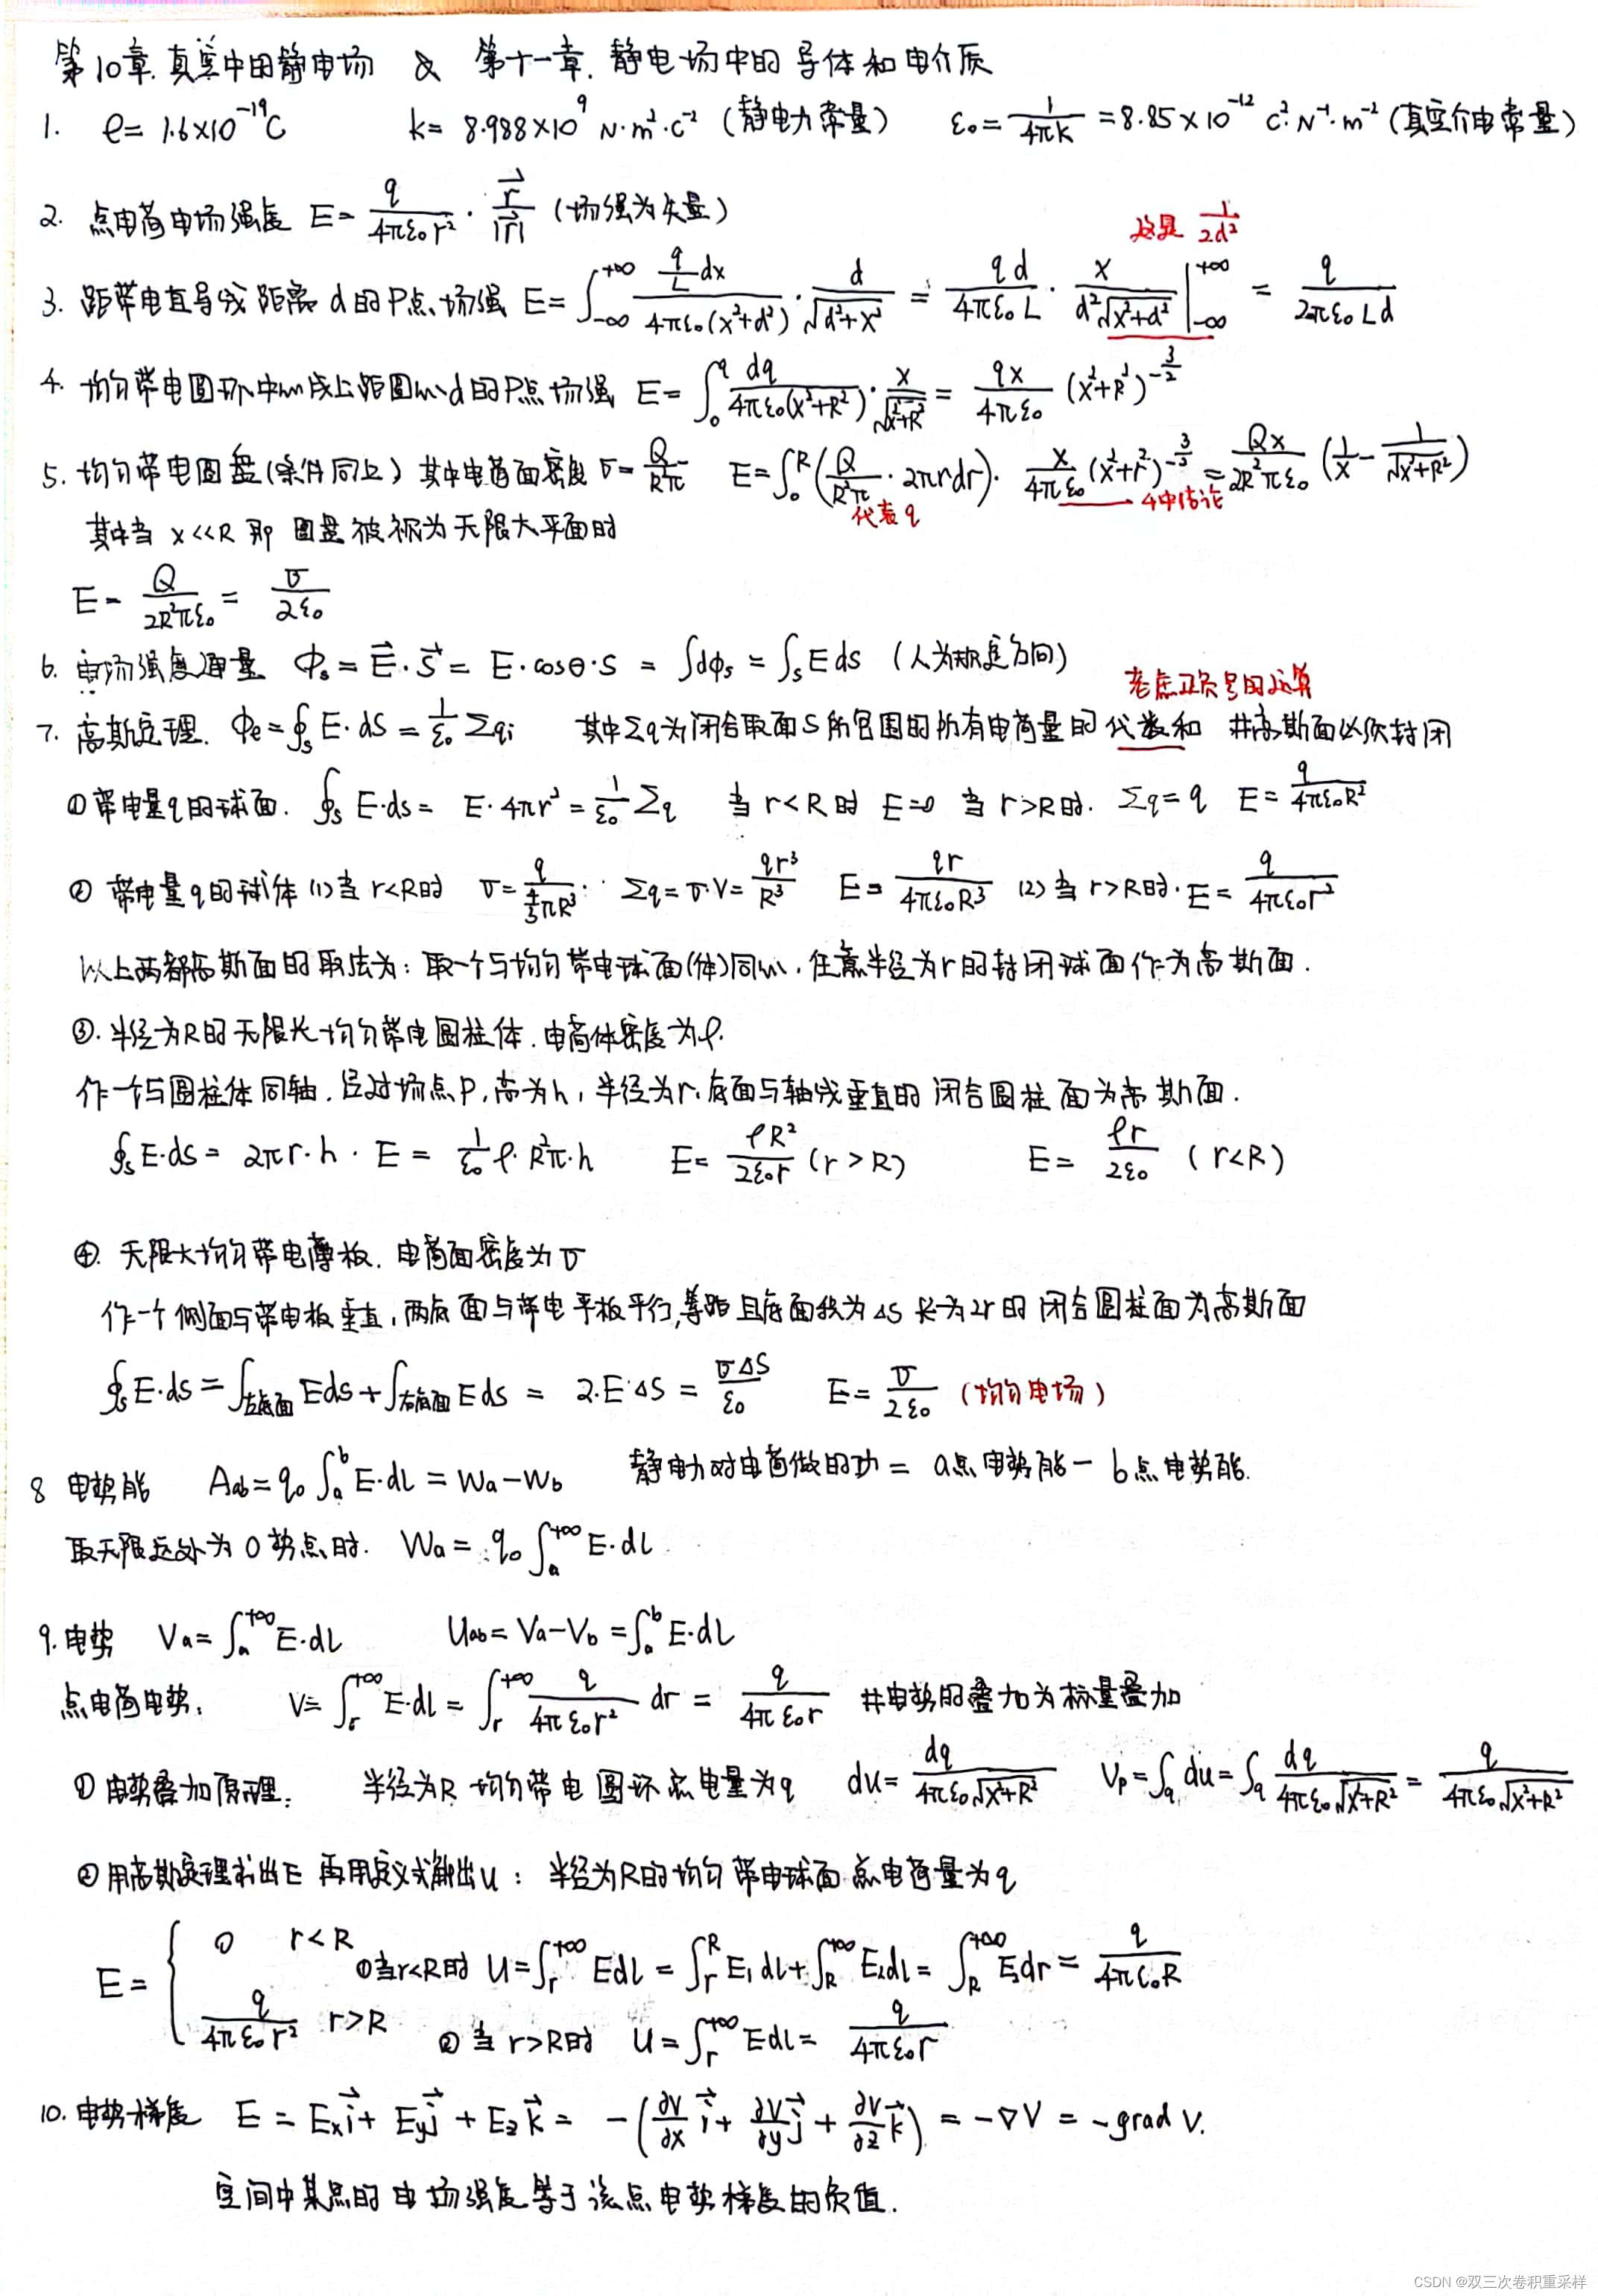 第10章.真空中的静电场 & 第十一章.静电场中的导体和电介质
1. e=1.6×10⁻¹⁹C k=8.988×10⁹ N·m²·c⁻² (静电力常量) ε₀=1/(4πk)=8.85×10⁻¹² c²·N⁻¹·m⁻² (真空介电常量)
2. 点电荷电场强度 E=q/(4πε₀r²)·r⃗/|r⃗| (场强为矢量)
这是 1/(2d²)
3. 距带电直导线距离d的P点场强 E=∫₋∞⁺∞ (q/L dx)/(4πε₀(x²+d²))·d/√(d²+x²) = qd/(4πε₀L)·x/(d²√(x²+d²))|₋∞⁺∞ = q/(2πε₀Ld)
4. 均匀带电圆环中心线上距圆心d的P点场强 E=∫₀^q dq/(4πε₀(x²+R²))·x/√(x²+R²) = qx/(4πε₀) (x²+R²)^(-3/2)
5. 均匀带电圆盘(条件同上) 其中电荷面密度σ=Q/(R²π) E=∫₀^R(Q/(R²π)·2πrdr)·x/(4πε₀)(x²+r²)^(-3/2)=Qx/(2R²πε₀)(1/x-1/√(x²+R²))
代表q 4中结论
其中当 x<<R 即 圆盘被视为无限大平面时
E=Q/(2R²πε₀)=σ/(2ε₀)
6. 电场强度通量 Φₛ=E⃗·S⃗=E·cosθ·S=∫dφₛ=∫ₛEds (人为规定方向)
考虑正负号的运算
7. 高斯定理. Φe=∮ₛE·dS=1/ε₀ Σqi 其中Σq为闭合取面S所包围的所有电荷量的代数和 #高斯面必须封闭
① 带电量q的球面. ∮ₛE·ds= E·4πr²=1/ε₀ Σq 当r<R时 E=0 当r>R时. Σq=q E=q/(4πε₀R²)
② 带电量q的球体 (1)当r<R时 σ=q/(4/3πR³) Σq=σ·V=qr³/R³ E=qr/(4πε₀R³) (2)当r>R时. E=q/(4πε₀r²)
以上两都高斯面的取法为: 取一个与均匀带电球面(体)同心, 任意半径为r的封闭球面作为高斯面.
③. 半径为R的无限长均匀带电圆柱体. 电荷体密度为ρ.
作一个与圆柱体同轴. 经过场点P, 高为h, 半径为r. 底面与轴线垂直的闭合圆柱面为高斯面.
∮ₛE·ds= 2πr·h·E=1/ε₀ ρ·R²π·h E=ρR²/(2ε₀r) (r>R) E=ρr/(2ε₀) (r<R)
④. 无限大均匀带电薄板. 电荷面密度为σ
作一个侧面与带电板垂直, 两底面与带电平板平行,等距且底面积为ΔS 长为2r的闭合圆柱面为高斯面
∮ₛE·ds=∫左底面Eds+∫右底面Eds = 2·E·ΔS=σΔS/ε₀ E=σ/(2ε₀) (均匀电场)
8 电势能 Aab=q₀∫ₐᵇE·dl=Wa-Wb 静电力对电荷做的功=a点电势能-b点电势能.
取无限远处为0势点时. Wa=q₀∫ₐ⁺∞E·dl
9. 电势 Va=∫ₐ⁺∞E·dl Uab=Va-Vb=∫ₐᵇE·dl
点电荷电势: V=∫ᵣ⁺∞E·dl=∫ᵣ⁺∞ q/(4πε₀r²) dr=q/(4πε₀r) #电势的叠加为标量叠加
① 电势叠加原理: 半径为R 均匀带电圆环总电量为q du=dq/(4πε₀√(x²+R²)) Vp=∫q du=∫q dq/(4πε₀√(x²+R²))=q/(4πε₀√(x²+R²))
② 用高斯定理求出E 再用定义式解出u: 半径为R的均匀带电球面总电荷量为q
E={ 0 r<R ①当r<R时 U=∫ᵣ⁺∞Edl=∫ᵣᴿE₁dl+∫ʀ⁺∞E₂dl=∫ʀ⁺∞E₂dr=q/(4πε₀R)
q/(4πε₀r²) r>R ②当r>R时 U=∫ᵣ⁺∞Edl=q/(4πε₀r)
10. 电势梯度 E=Exi⃗+Eyj⃗+Ezk⃗=-(∂V/∂x i⃗+∂V/∂y j⃗+∂V/∂z k⃗)=-∇V=-grad V.
空间中某点的电场强度等于该点电势梯度的负值.
CSDN @双三次卷积重采样